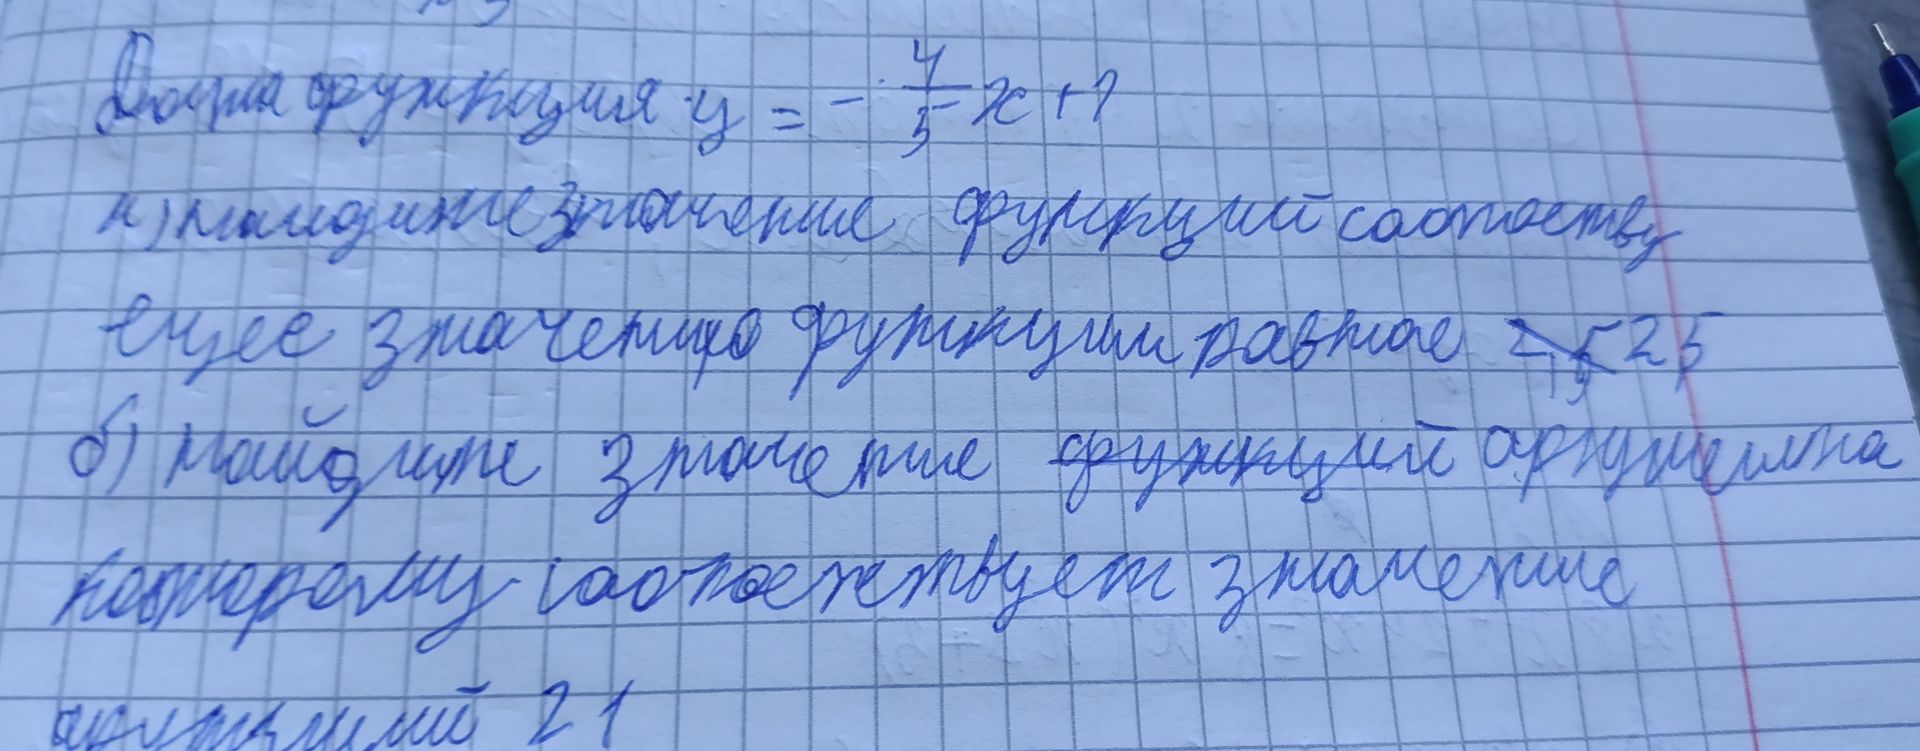 Дана функция y = - 4/5 x + 1
а) найдите значение функций соответству
ещее значению функции равное 25
б) найдите значение функций аргумента
которому соответствует значение
функций 21